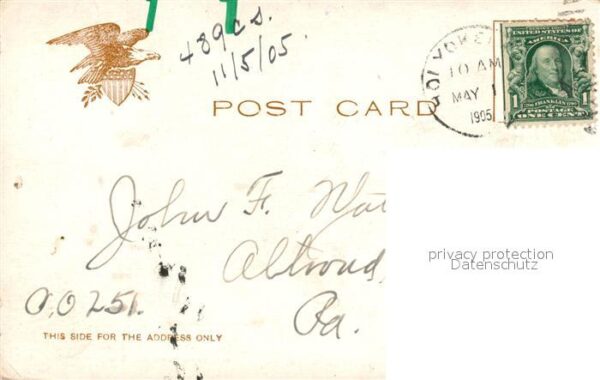 489 cs.
11/5/05.
POST CARD
HOLYOKE
10 AM
MAY 1
1905
UNITED STATES OF
AMERICA
1 FRANKLIN 1
POSTAGE
ONE CENT
John F.
privacy protection
Datenschutz
Pa.
O.O 251.
THIS SIDE FOR THE ADDRESS ONLY